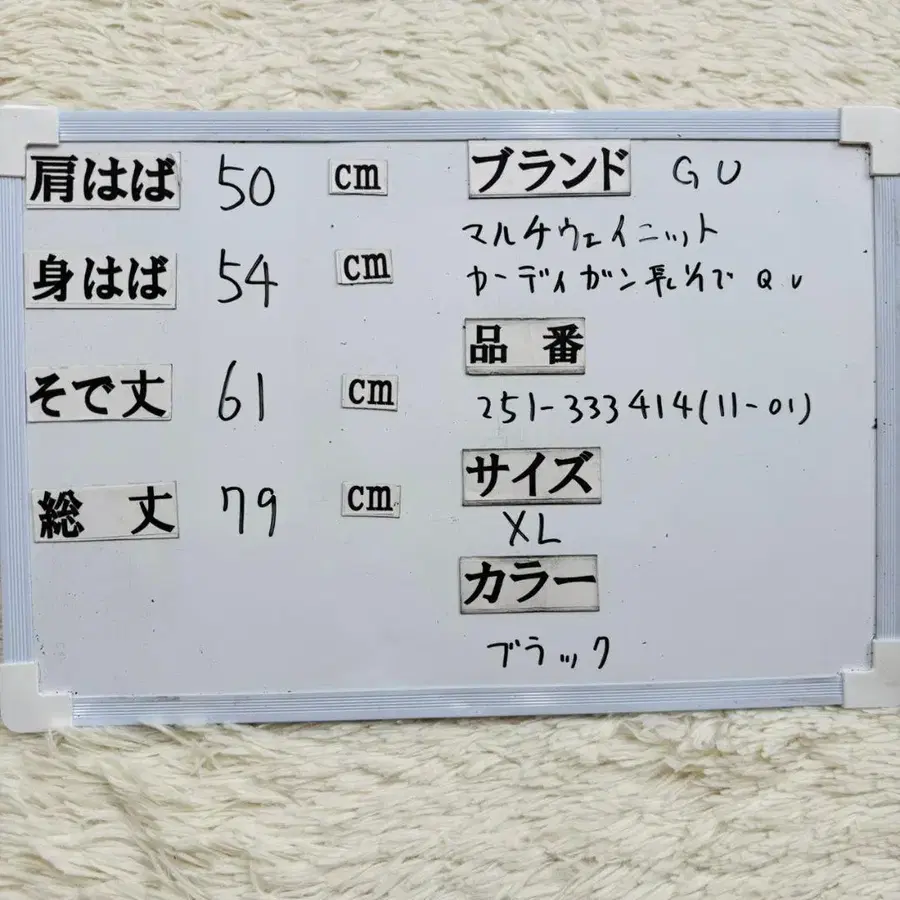 肩はば 50 cm
身はば 54 cm
そで丈 61 cm
総 丈 79 cm
ブランド GU
マルチウェイニット
カーディガン長そで QU
品 番
251-333414(11-01)
サイズ
XL
カラー
ブラック